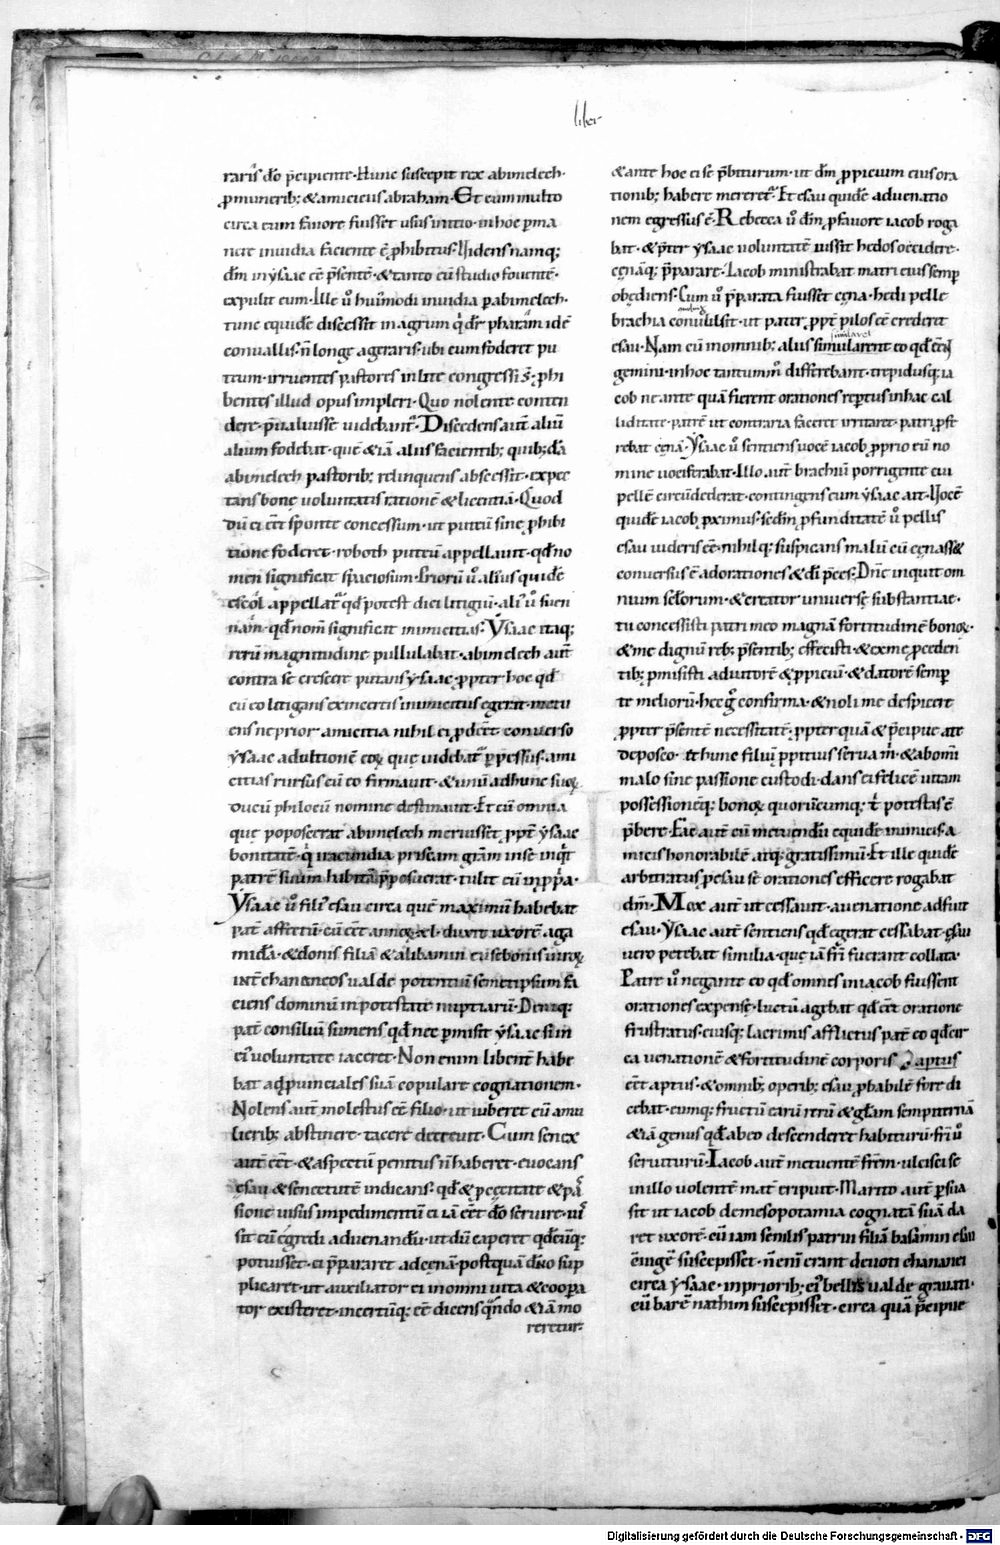 liber
raris do p̄cipiente. Hunc suscepit rex abimelech.
p muneribꝫ & amicicius abraham. Et cum multo
circa eum fauore fuisset usus initio. in hoc pma
nere inuidia faciente ē phibitus. Uidens namqꝫ
dm̄ in ysaac eē p̄sentē. & tanto cū studio fouentē.
expulit eum. Ille ū hui᷒modi inuidia p abimelech.
tunc equidē discessit in agrum qi dr̄ pharam idē
conuallis. n̄ longe a geraris. ubi cum foderet pu
teum. irruentes pastores in lite congressi s̄. phi
bentes illud opus impleri. Quo nolente conten
dere. p̄ualuisse uidebant̄. Discedens aut̄ aliū
alium fodebat. quē & iā aliis facientibꝫ quibꝫdā
abimelech pastoribꝫ relinquens abscessit. expec
tans bonę uoluntatis rationē & licentiā. Quod
dū ei eēt sponte concessum. ut puteū sine phibi
tione foderet. roboth puteū appellauit. qd̄ no
men significat spaciosum. Prioru ū alius quidē
escol appellat̄ qd̄ potest dici litigiū. ali᷒ ū sien
nam̄. qd̄ nom̄ significat inimicitias. Ysaac itaqꝫ
rerū magnitudine pullulabat. abimelech aut̄
contra se crescere putans ysaac. ppter hoc qd̄
cū eo litigans ex incertis inimicitus egerit. metu
ens ne prior amicitia nihil ei pdeēt conuerso
ysaac ad ultionē eoꝝ que uidebat̄ ppessus. ami
citias rursus cū eo firmauit. & unū ad hunc suoꝝ
ducū philocū nomine destinauit. Et cū omnia
que poposcerat abimelech meruisset. ppt̄ ysaac
bonitatē. qi iracundia priscam grām in se inqit
patrē suum habitā pposuerat. tulit cū in ppa.
Ysaac ū fili᷒ esau circa quē maximū habebat
pat̄ affectū. cū eēt annoꝝ xl. duxit uxorē aga
midā. & donis filiā & alibamin eusebonis uiroꝝ
int̄ chananeos ualde potentiū semetipsum fa
ciens dominū in potestate nuptiarū. Deniqꝫ
pat̄ consiliū sumens qd̄ nec pmisit ysaac si in
ei᷒ uoluntate iaceret. Non enim libent̄ habe
bat ad puinciales suā copulare cognationem.
Nolens aut̄ molestus eē filio. ut iuberet eū amu
lieribꝫ abstinere. tacere decreuit. Cum senex
aut̄ eēt. & aspectū penitus n̄ haberet. euocans
esau & senectutē indicans. qd̄ & p cecitate & pas
sione uisus impedimentū ei iā eēt do seruire. iu
sit eū egredi ad uenandū. ut dū caperet qd̄cūqꝫ
potuisset. ei ppararet ad cenā. postquā dn̄o sup
plicaret. ut auxiliator ei in omni uita & coopa
tor existeret. incertūqꝫ eē dicens qn̄do & iā mo
reretur.
& ante hoc ei se p̄biturum. ut dm̄ ppicium eius ora
tionibꝫ habere mereret̄. Et esau quidē ad uenatio
nem egressus ē. Rebecca ū dm̄ p fauore iacob roga
bat. & p̄ter ysaac uoluntatē iussit hedos occidere.
cenāqꝫ p̄parare. Iacob ministrabat matri eius semp
obediens. Cum ū p̄parata fuisset cena. hedi pelle
brachia conuulsit. ut pater ppt̄ pilos eē crederet
esau. Nam cū in omnibꝫ aliis simularent eo qd̄ eēnt
similaret
gemini. in hoc tantummō differebant. trepidusqꝫ ia
cob ne ante quā fierent orationes reptus in hac cal
liditate. patrē ut contraria faceret irritaret. patri pfe
rebat cenā. Ysaac ū sentiens uocē iacob pprio eū no
mine uociferabat. Illo aut̄ brachiū porrigente cui
pellē circūdederat. contingens cum ysaac ait. Uocē
quidē iacob pximus. sed in pfunditatē ū pellis
esau uideris eē. nihilqꝫ suspicans malū cū cenasset
conuersus ē ad orationes & di p̄ces. Dn̄e inquit om
nium sclorum. & creator uniuersę substantiae.
tu concessisti patri meo magnā fortitudinē bonoꝝ.
& me dignū rebꝫ p̄sentibꝫ effecisti. & ex me pceden
tibꝫ pmisisti adiutorē & ppiciū. & datorē semp
te meliorū. hec g̊ confirma. & noli me despicere
ppter p̄sentē necessitatē. ppter quā & p̄cipue ate
deposco. & hunc filiū ppitius serua m̄. & ab omi
malo sine passione custodi. dans ei felicē uitam
possessionēqꝫ bonoꝝ quorūcumqꝫ t̄ potestas ē
p̄bere. Fac aut̄ eū metuendū equidē inimicis. a
micis honorabilē atqꝫ gratissimū. Et ille quidē
arbitratus p esau se orationes efficere rogabat
dm̄. Mox aut̄ ut cessauit. a uenatione adfuit
esau. Ysaac aut̄ sentiens qd̄ egerat cessabat. esau
uero petebat similia. que iā fri̅ fuerant collata.
Patre ū negante eo qd̄ omnes in iacob fuissent
orationes expensę. luctū agebat qd̄ eēt oratione
frustratus. eiusqꝫ lacrimis afflictus pat̄ eo qd̄ cir
ca uenationē & fortitudinē corporis aptus
eēt aptus. & omnibꝫ operibꝫ esau pbabilē fore di
cebat. eumqꝫ fructū earū rerū & glam sempiternā
& iā genus qd̄ ab eo descenderet habiturū. fri̅ ū
seruiturū. Iacob aut̄ metuentē frēm. ulcisci se
in illo uolentē mat̄ eripuit. Marito aut̄ psua
sit ut iacob de mesopotamia cognatā suā da
ret uxorē. cū iam senilis patrui filiā basamin esau
eiungē suscepisset. n̄ enī erant deuoti chananei
circa ysaac. in prioribꝫ ei᷒ bellis ualde grauati.
cū barē nathim suscepisset. circa quā p̄cipue
Digitalisierung gefördert durch die Deutsche Forschungsgemeinschaft - DFG